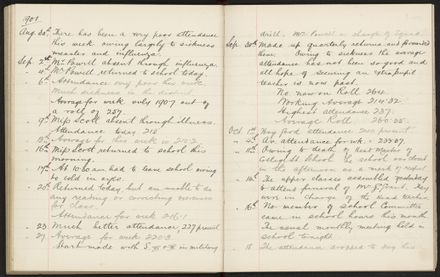 1901.
Aug. 30th There has been a very poor attendance
this week owing largely to sickness
measles and influenza.
Sep. 2nd Mr. Powell absent through influenza.
" 4th Mr. Powell returned to school today.
" 6th Attendance very poor this week.
Much sickness in the district
Average for week only 190.7 out of
a roll of 257.
" 9th Miss Scott absent through illness.
Attendance today 218
" 13th Average for this week is 213.2
" 16th Miss Scott returned to school this
morning.
" 17th At 10.20 am had to leave school owing
to cold in eyes.
" 20th Returned today but am unable to do
any reading or correcting exercises
for class.
Attendance for week 216.1
" 23 Much better attendance, 227 present
" 27 Average for week 220.3
Start made with S. in military
drill. Mr. Powell in charge of Squad.
Sep. 30th Made up quarterly returns and forwarded
them. Owing to sickness the average
attendance has not been so good and
all hope of securing an extra pupil
teacher is now past.
No. now on Roll 264.
Working Average 214.82
Highest attendance 237.
Average Roll 260.25.
Oct 1st Very good attendance present.
" 4th Av. attendance for wk. 237.07.
" 8th Owing to death of Rect Master of
Collegiate School the school was closed
in the afternoon as a mark of respect
" 10th The upper classes assembled yesterday
to attend funeral of Mr. They
were in charge of the Head Teacher
" 16th No member of School Committee
came in school hours this month
The usual monthly meeting held in
school tonight
" 18 The attendance dropped to day